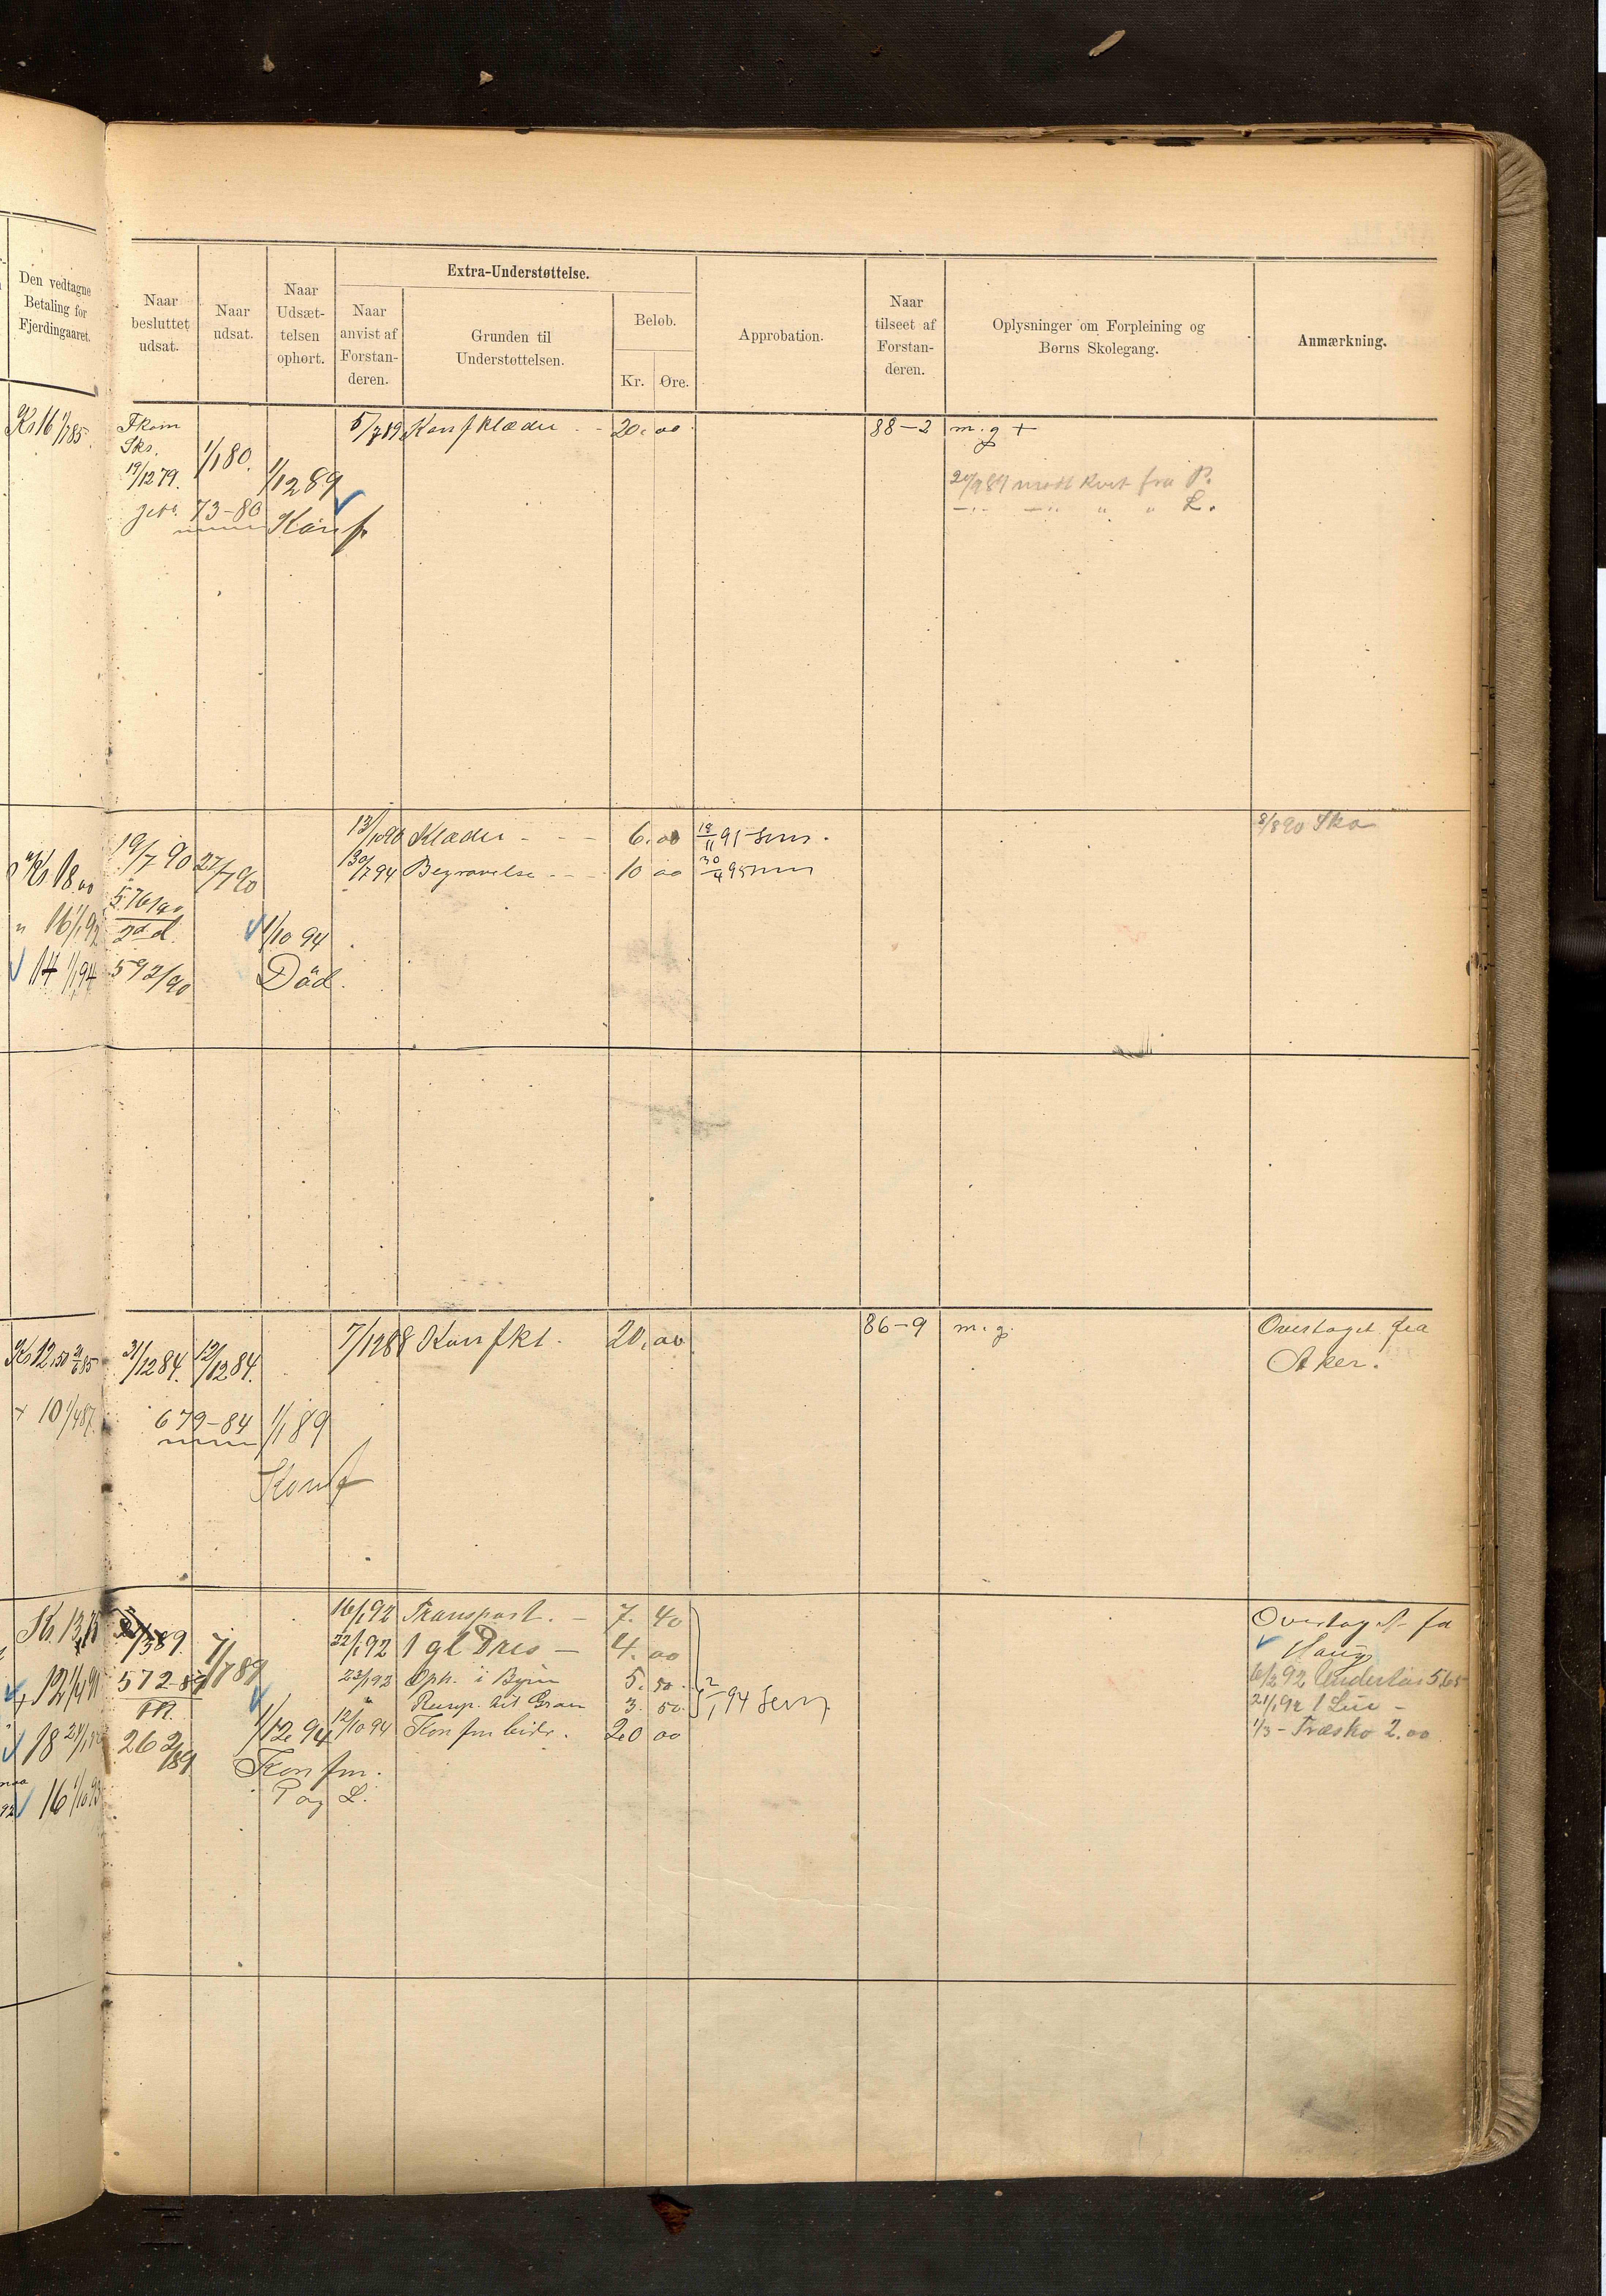 Den vedtagne
Betaling for
Fjerdingaaret.
Naar
besluttet
udsat.
Naar
udsat.
Naar
Udsæt-
telsen
ophørt.
Extra-Understøttelse.
Naar
anvist af
Forstan-
deren.
Grunden til
Understøttelsen.
Beløb.
Kr.
Øre.
Approbation.
Naar
tilseet af
Forstan-
deren.
Oplysninger om Forpleining og
Børns Skolegang.
Anmærkning.
Kr 16 1/1 85.
Fkom
Sks.
19/12 79.
73-80
1/1 80.
1/12 89
Konf
5/7 89 Konfklæder - 20.00
88-2 m.g +
fra P.
" " L.
Kr 18.00
" 16 1/1 92
14 1/1 94
19/7 90
576/90
592/90
27/7 90
1/10 94
Död.
13/10 90 Klæder - - - 6.00 18/11 91
13/7 94 Begravelse - - - 10 00 30/4 95
8/8 90 Sko
Kr 12,50
+ 10 1/4 87.
31/12 84. 12/12 84.
679-84 1/1 89
Konf
7/12 88 Konfkl. 20.00
86-9 m.g.
Overtaget fra
Aker.
Kr. 13,75
12 1/4 91
18
16 1/10 93
572-89
262/89
7/7 89
1/12 94
Konfm.
P og L.
16/1 92 Transport. - 7. 40
22/1 92 1 gl Dres - 4. 00
23/1 92 Oph. i Byen 5. 50.
" til Gran 3. 50.
12/10 94 Konfm bidr. 20 00
2/1 94
Overtaget fra
Haug
6/2 92 5,65
21/1 92 1 Lue -
1/3 - Træsko 2.00